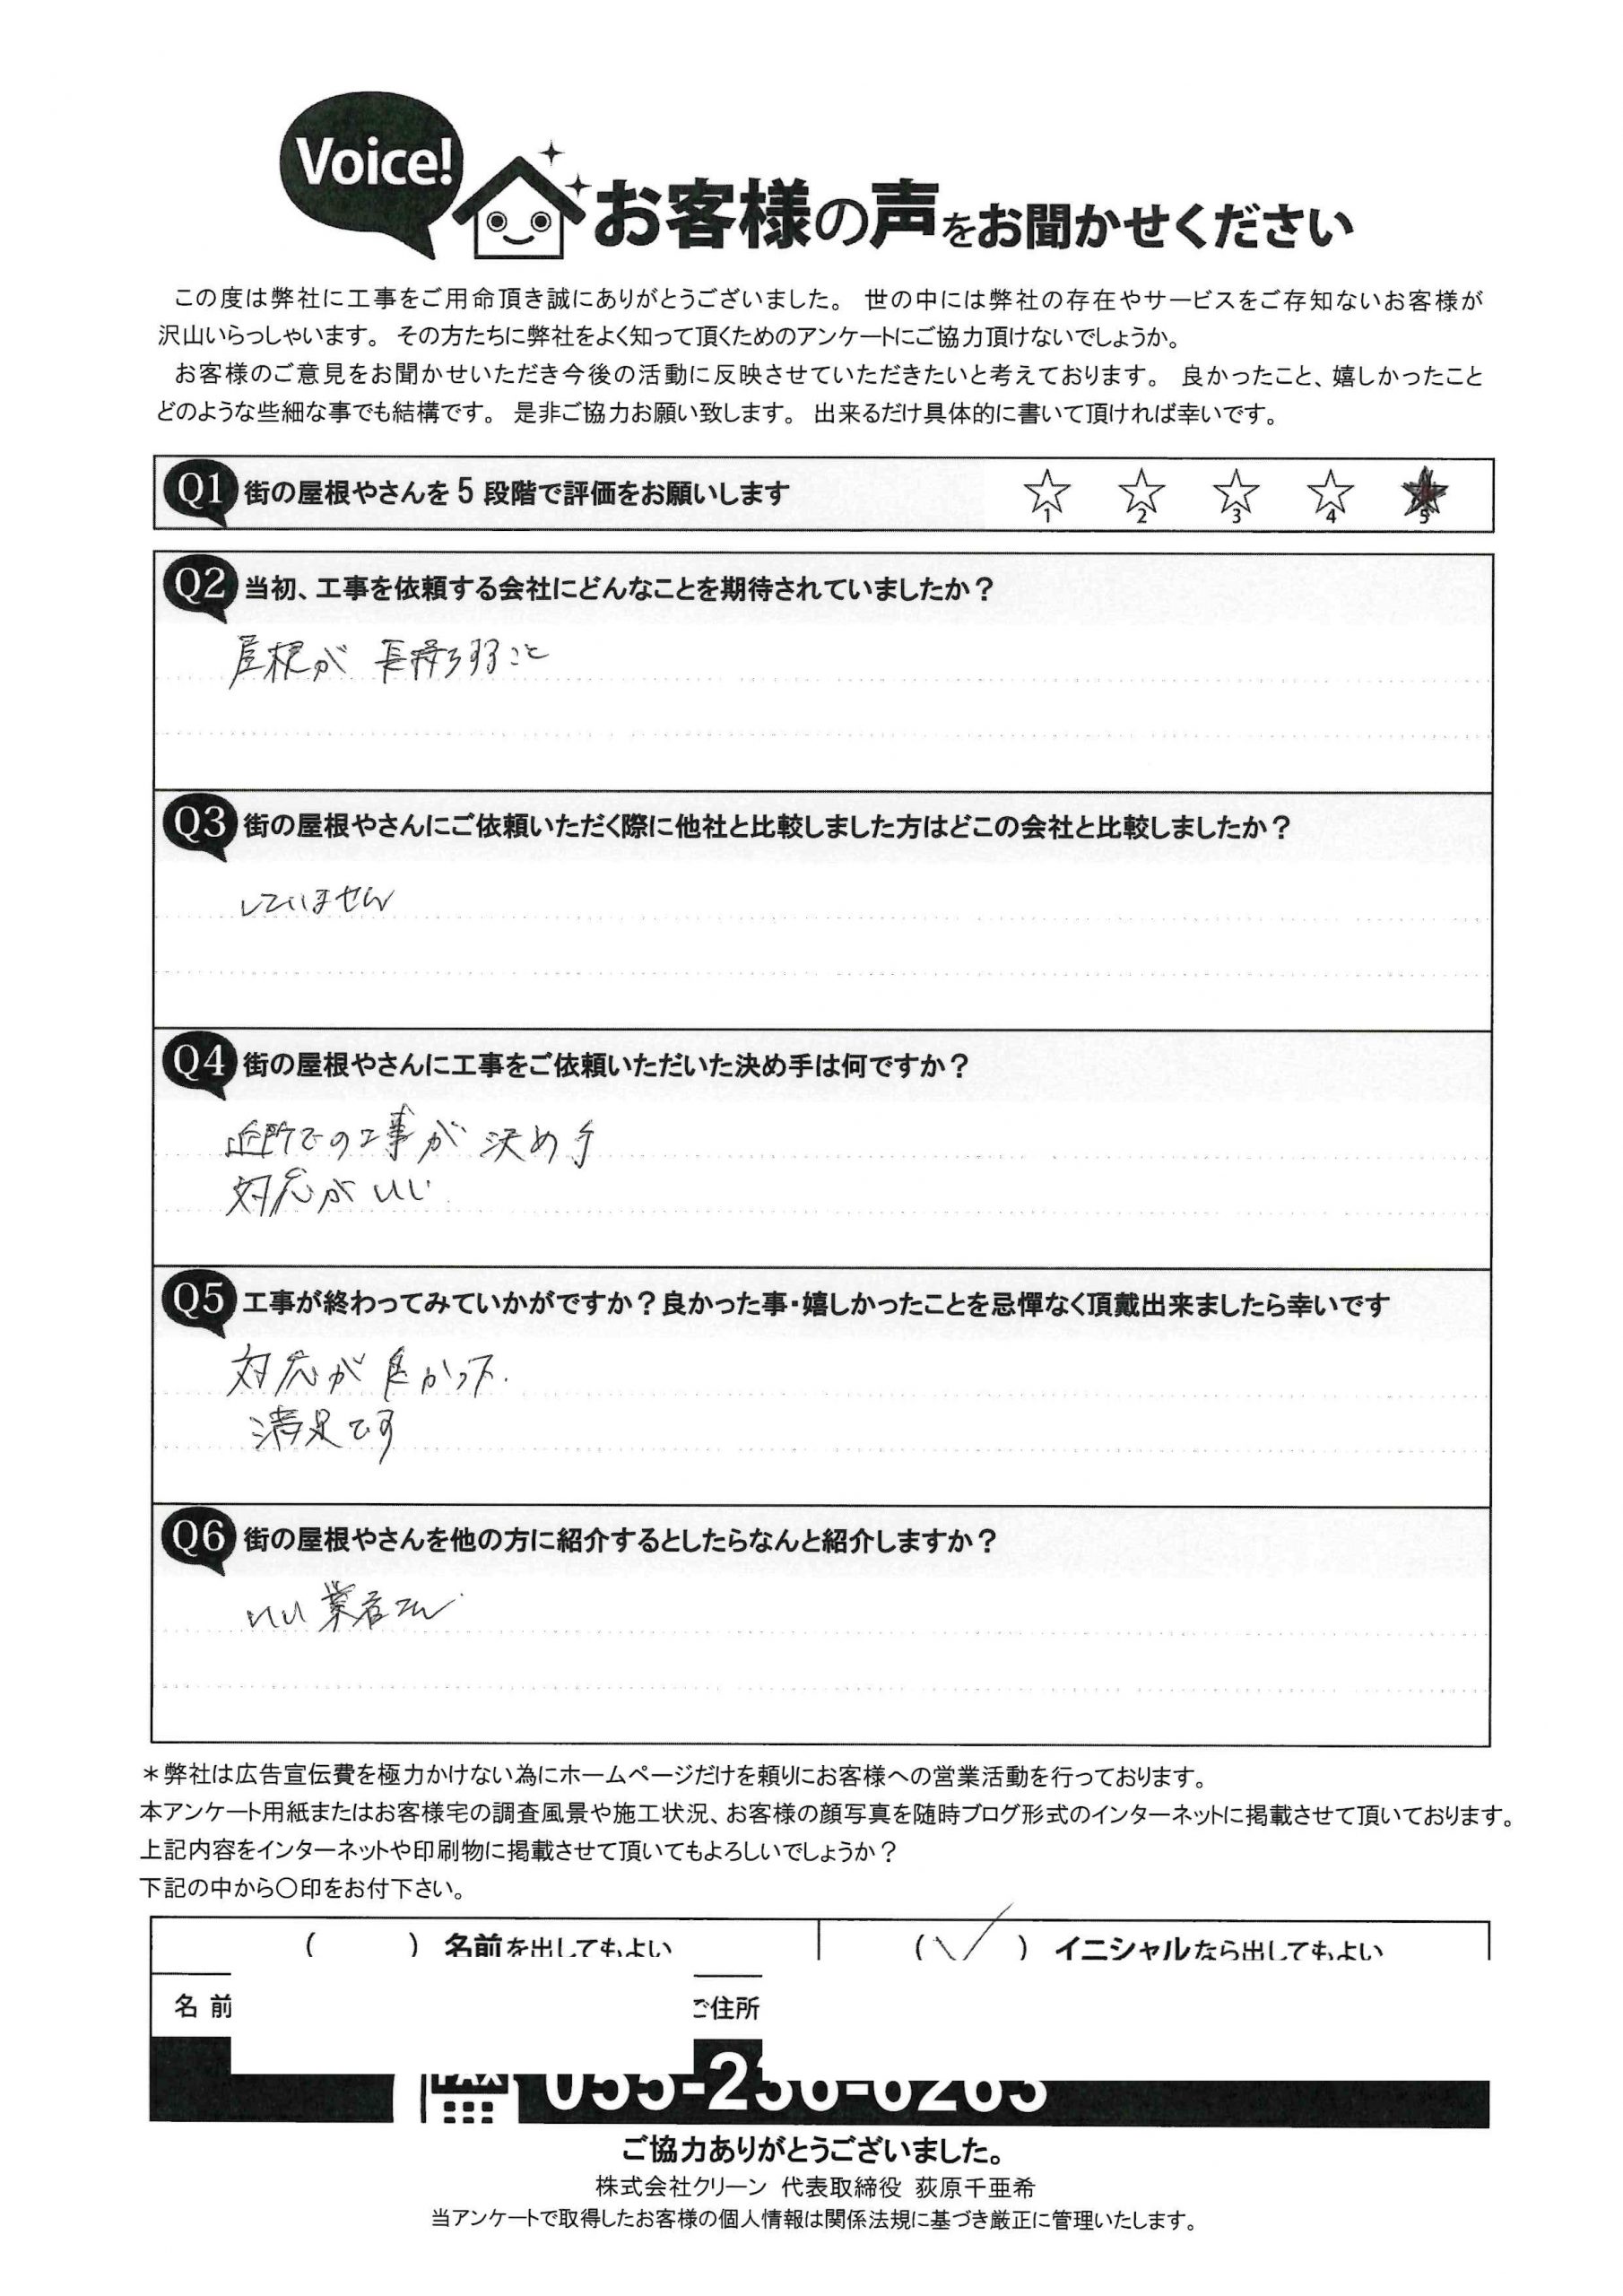 Voice!
お客様の声をお聞かせください
この度は弊社に工事をご用命頂き誠にありがとうございました。 世の中には弊社の存在やサービスをご存知ないお客様が
沢山いらっしゃいます。 その方たちに弊社をよく知って頂くためのアンケートにご協力頂けないでしょうか。
お客様のご意見をお聞かせいただき今後の活動に反映させていただきたいと考えております。 良かったこと、嬉しかったこと
どのような些細な事でも結構です。 是非ご協力お願い致します。 出来るだけ具体的に書いて頂ければ幸いです。
Q1 街の屋根やさんを5段階で評価をお願いします ☆1 ☆2 ☆3 ☆4 ★5
Q2 当初、工事を依頼する会社にどんなことを期待されていましたか？
屋根が 長持ちすること
Q3 街の屋根やさんにご依頼いただく際に他社と比較しました方はどこの会社と比較しましたか？
していません
Q4 街の屋根やさんに工事をご依頼いただいた決め手は何ですか？
近所での工事が 決め手
対応がいい
Q5 工事が終わってみていかがですか？良かった事・嬉しかったことを忌憚なく頂戴出来ましたら幸いです
対応が良かった.
満足です
Q6 街の屋根やさんを他の方に紹介するとしたらなんと紹介しますか？
いい業者さん
＊弊社は広告宣伝費を極力かけない為にホームページだけを頼りにお客様への営業活動を行っております。
本アンケート用紙またはお客様宅の調査風景や施工状況、お客様の顔写真を随時ブログ形式のインターネットに掲載させて頂いております。
上記内容をインターネットや印刷物に掲載させて頂いてもよろしいでしょうか？
下記の中から〇印をお付下さい。
( ) 名前を出してもよい (✓) イニシャルなら出してもよい
名前 ご住所
FAX 055-236-6263
ご協力ありがとうございました。
株式会社クリーン 代表取締役 荻原千亜希
当アンケートで取得したお客様の個人情報は関係法規に基づき厳正に管理いたします。